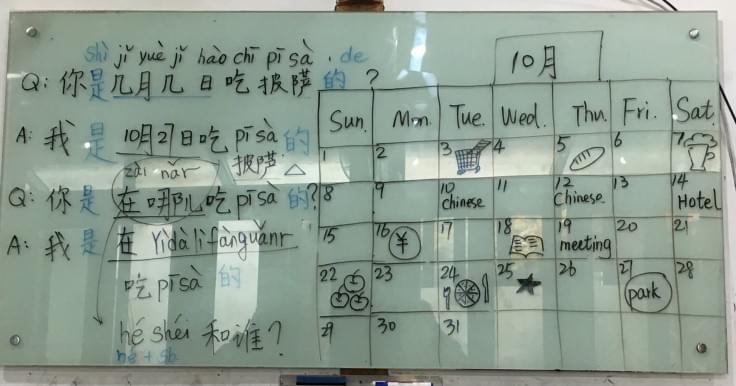 shì jǐ yuè jǐ hào chī pī sà . de
Q: 你是几月几日吃披萨的?
A: 我是10月27日吃pī sà的
zài nǎr
披萨
Q: 你是在哪儿吃pī sà的?
A: 我是在Yìdàlì fànguǎnr
吃pī sà的
hé shéi 和谁?
hé + sb
10月
Sun. Mon. Tue. Wed. Thu. Fri. Sat.
1 2 3 4 5 6 7
8 9 10 Chinese 11 12 Chinese. 13 14 Hotel
15 16 ¥ 17 18 19 meeting 20 21
22 23 24 25 26 27 park 28
29 30 31